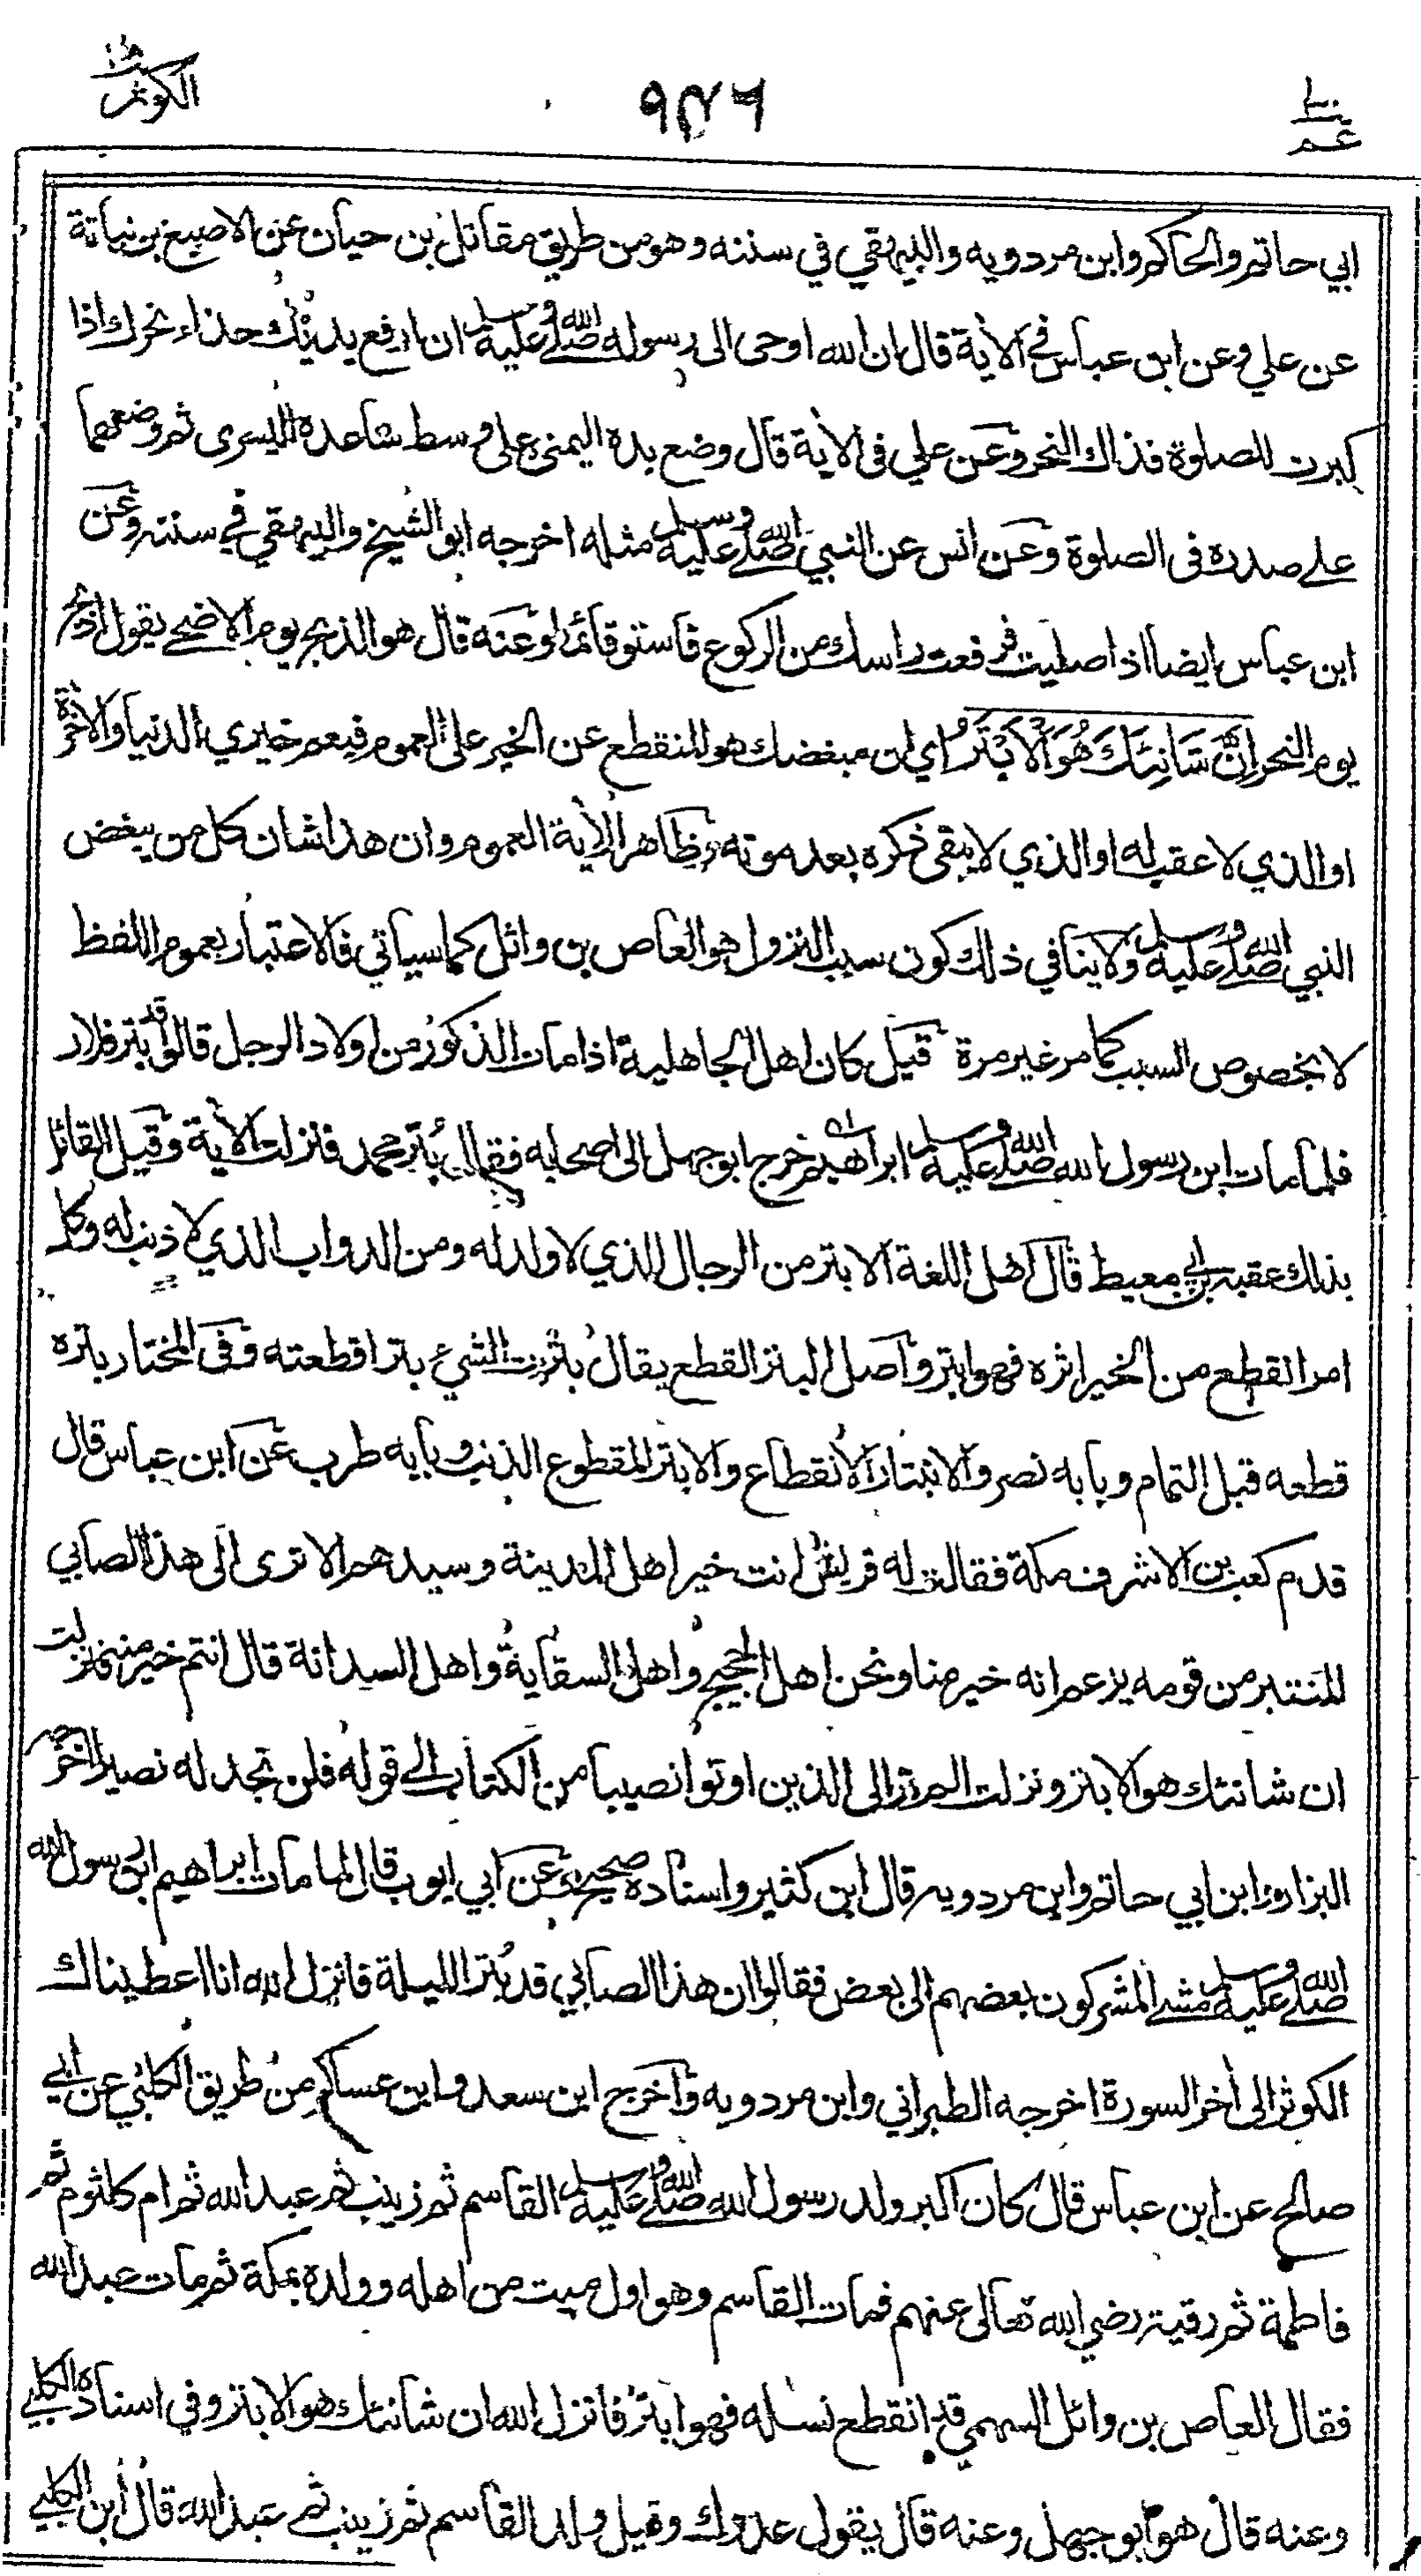 عم ٣٠
٩٤٦
الكوثر ١٠٨
ابي حاتم والحاكم وابن مردويه والبيهقي في سننه وهو من طريق مقاتل بن حيان عن الاصبغ بن نباتة
عن علي وعن ابن عباس في الأية قال ان الله اوحى الى رسوله صلى الله عليه وسلم ان ارفع يديك حذاء نحرك اذا
كبرت للصلوة فذاك النحر وعن علي فى الأية قال وضع يده اليمنى على وسط ساعده اليسرى ثم وضعهما
على صدره فى الصلوة وعن انس عن النبي صلى الله عليه وسلم مثله اخرجه ابو الشيخ والبيهقي في سننه وعن
ابن عباس ايضا اذا صليت فرفعت راسك من الركوع فاستو قائما وعنه قال هو الذبح يوم الاضحى يقول اذبح
يوم النحر اِنَّ شَانِئَكَ هُوَ الْاَبْتَرُ اي ان مبغضك هو المنقطع عن الخير على العموم فيعم خيري الدنيا والأخرة
او الذي لا عقب له او الذي لا يبقى ذكره بعد موته وظاهر الأية العموم وان هذا شان كل من يبغض
النبي صلى الله عليه وسلم ولا ينافي ذلك كون سبب النزول هو العاص بن وائل كما سياتي فالاعتبار بعموم اللفظ
لا بخصوص السبب كما مر غير مرة قيل كان اهل الجاهلية اذا مات الذكور من اولاد الرجل قالوا قد بتر فلان
فلما مات ابن رسول الله صلى الله عليه وسلم ابراهيم خرج ابو جهل الى اصحابه فقال بُتر محمد فنزلت الأية وقيل القائل
بذلك عقبه بن ابي معيط قال اهل اللغة الابتر من الرجال الذي لا ولد له ومن الدواب الذي لا ذنب له وكل
امر انقطع من الخير اثره فهو ابتر واصل البتر القطع يقال بترت الشيء بترا قطعته وفى المختار بتره
قطعه قبل التمام وبابه نصر والانبتار الانقطاع والابتر المقطوع الذنب وبابه طرب عن ابن عباس قال
قدم كعب بن الاشرف مكة فقالت له قريش انت خير اهل المدينة وسيدهم الا ترى الى هذا الصابي
المنتبر من قومه يزعم انه خير منا ونحن اهل الحجيج واهل السقاية واهل السدانة قال انتم خير منه فنزلت
ان شانئك هو الابتر ونزلت الم تر الى الذين اوتوا نصيبا من الكتاب الى قوله فلن تجد له نصيرا اخرجه
البزار وابن ابي حاتم وابن مردويه قال ابن كثير واسناده صحيح وعن ابي ايوب قال لما مات ابراهيم ابن رسول الله
صلى الله عليه وسلم مشى المشركون بعضهم الى بعض فقالوا ان هذا الصابي قد بُتر الليلة فانزل الله انا اعطيناك
الكوثر الى أخر السورة اخرجه الطبراني وابن مردويه واخرج ابن سعد وابن عساكر من طريق الكلبي عن ابي
صالح عن ابن عباس قال كان اكبر ولد رسول الله صلى الله عليه وسلم القاسم ثم زينب ثم عبد الله ثم ام كلثوم ثم
فاطمة ثم رقية رضي الله تعالى عنهم فمات القاسم وهو اول ميت من اهله وولده بمكة ثم مات عبد الله
فقال العاص بن وائل السهمي قد انقطع نسله فهو ابتر فانزل الله ان شانئك هو الابتر وفي اسناده الكلبي
وعنه قال هو ابو جهل وعنه قال يقول عدوك وقيل ولد القاسم ثم زينب ثم عبد الله قال ابن الكلبي